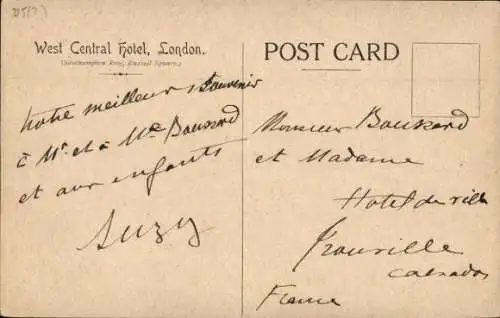 West Central Hotel, London.
(Southampton Row, Russell Square.)
notre meilleur souvenir
à Mr. et à Mme Boussard
et aux enfants
Suzy
POST CARD
Monsieur Boussard
et Madame
Hotel de ville
Trouville
Calvados
France